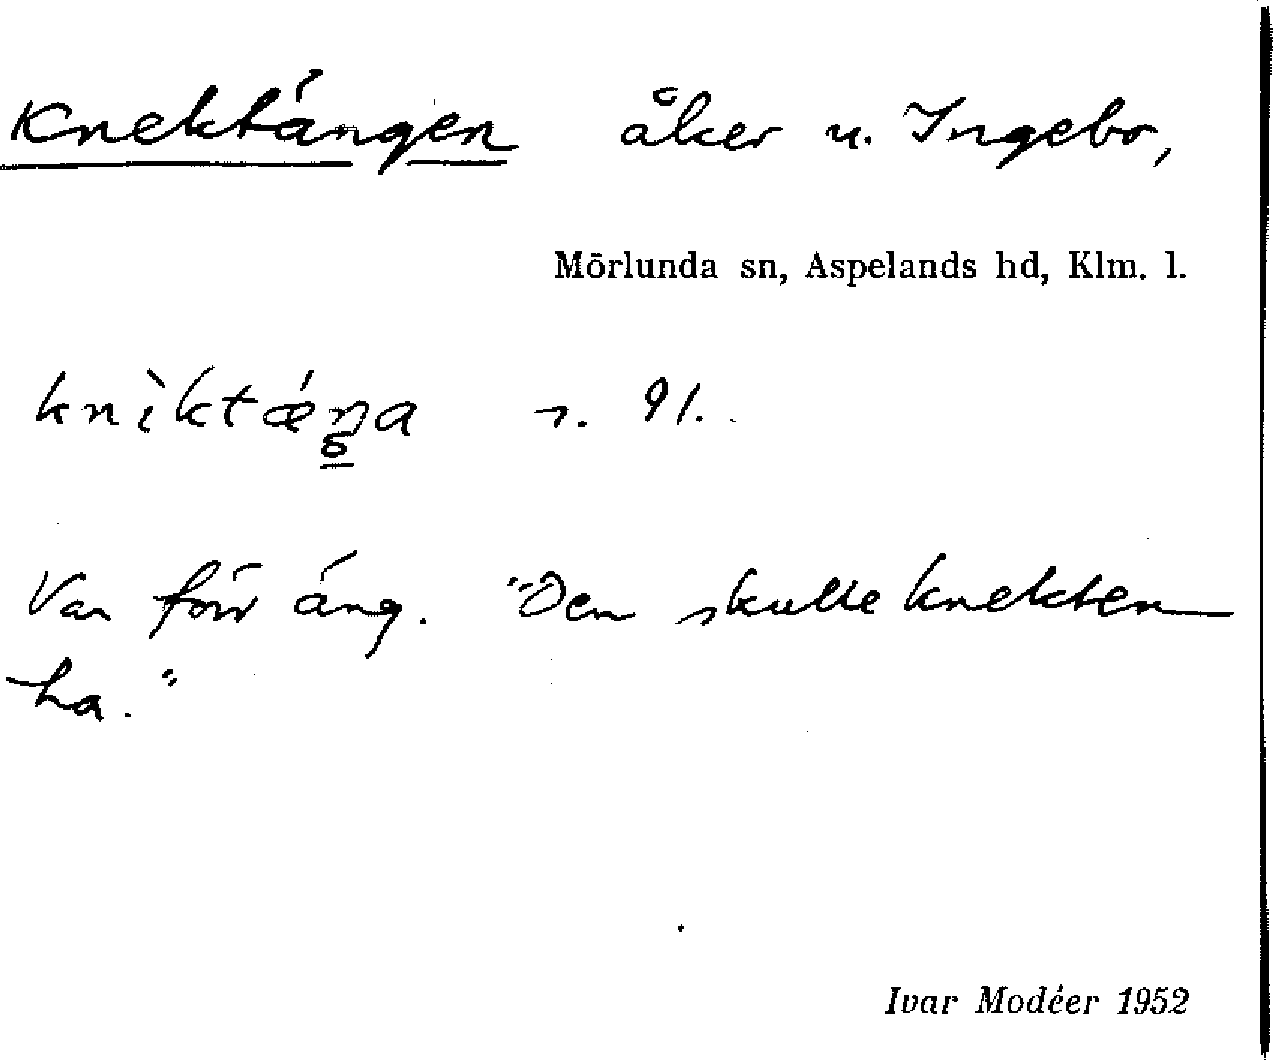 Knektängen åker u. Ingebo,
Mörlunda sn, Aspelands hd, Klm. l.
knìktǽŋa s. 91.
Var förr äng. "Den skulle knekten
ha."
Ivar Modéer 1952